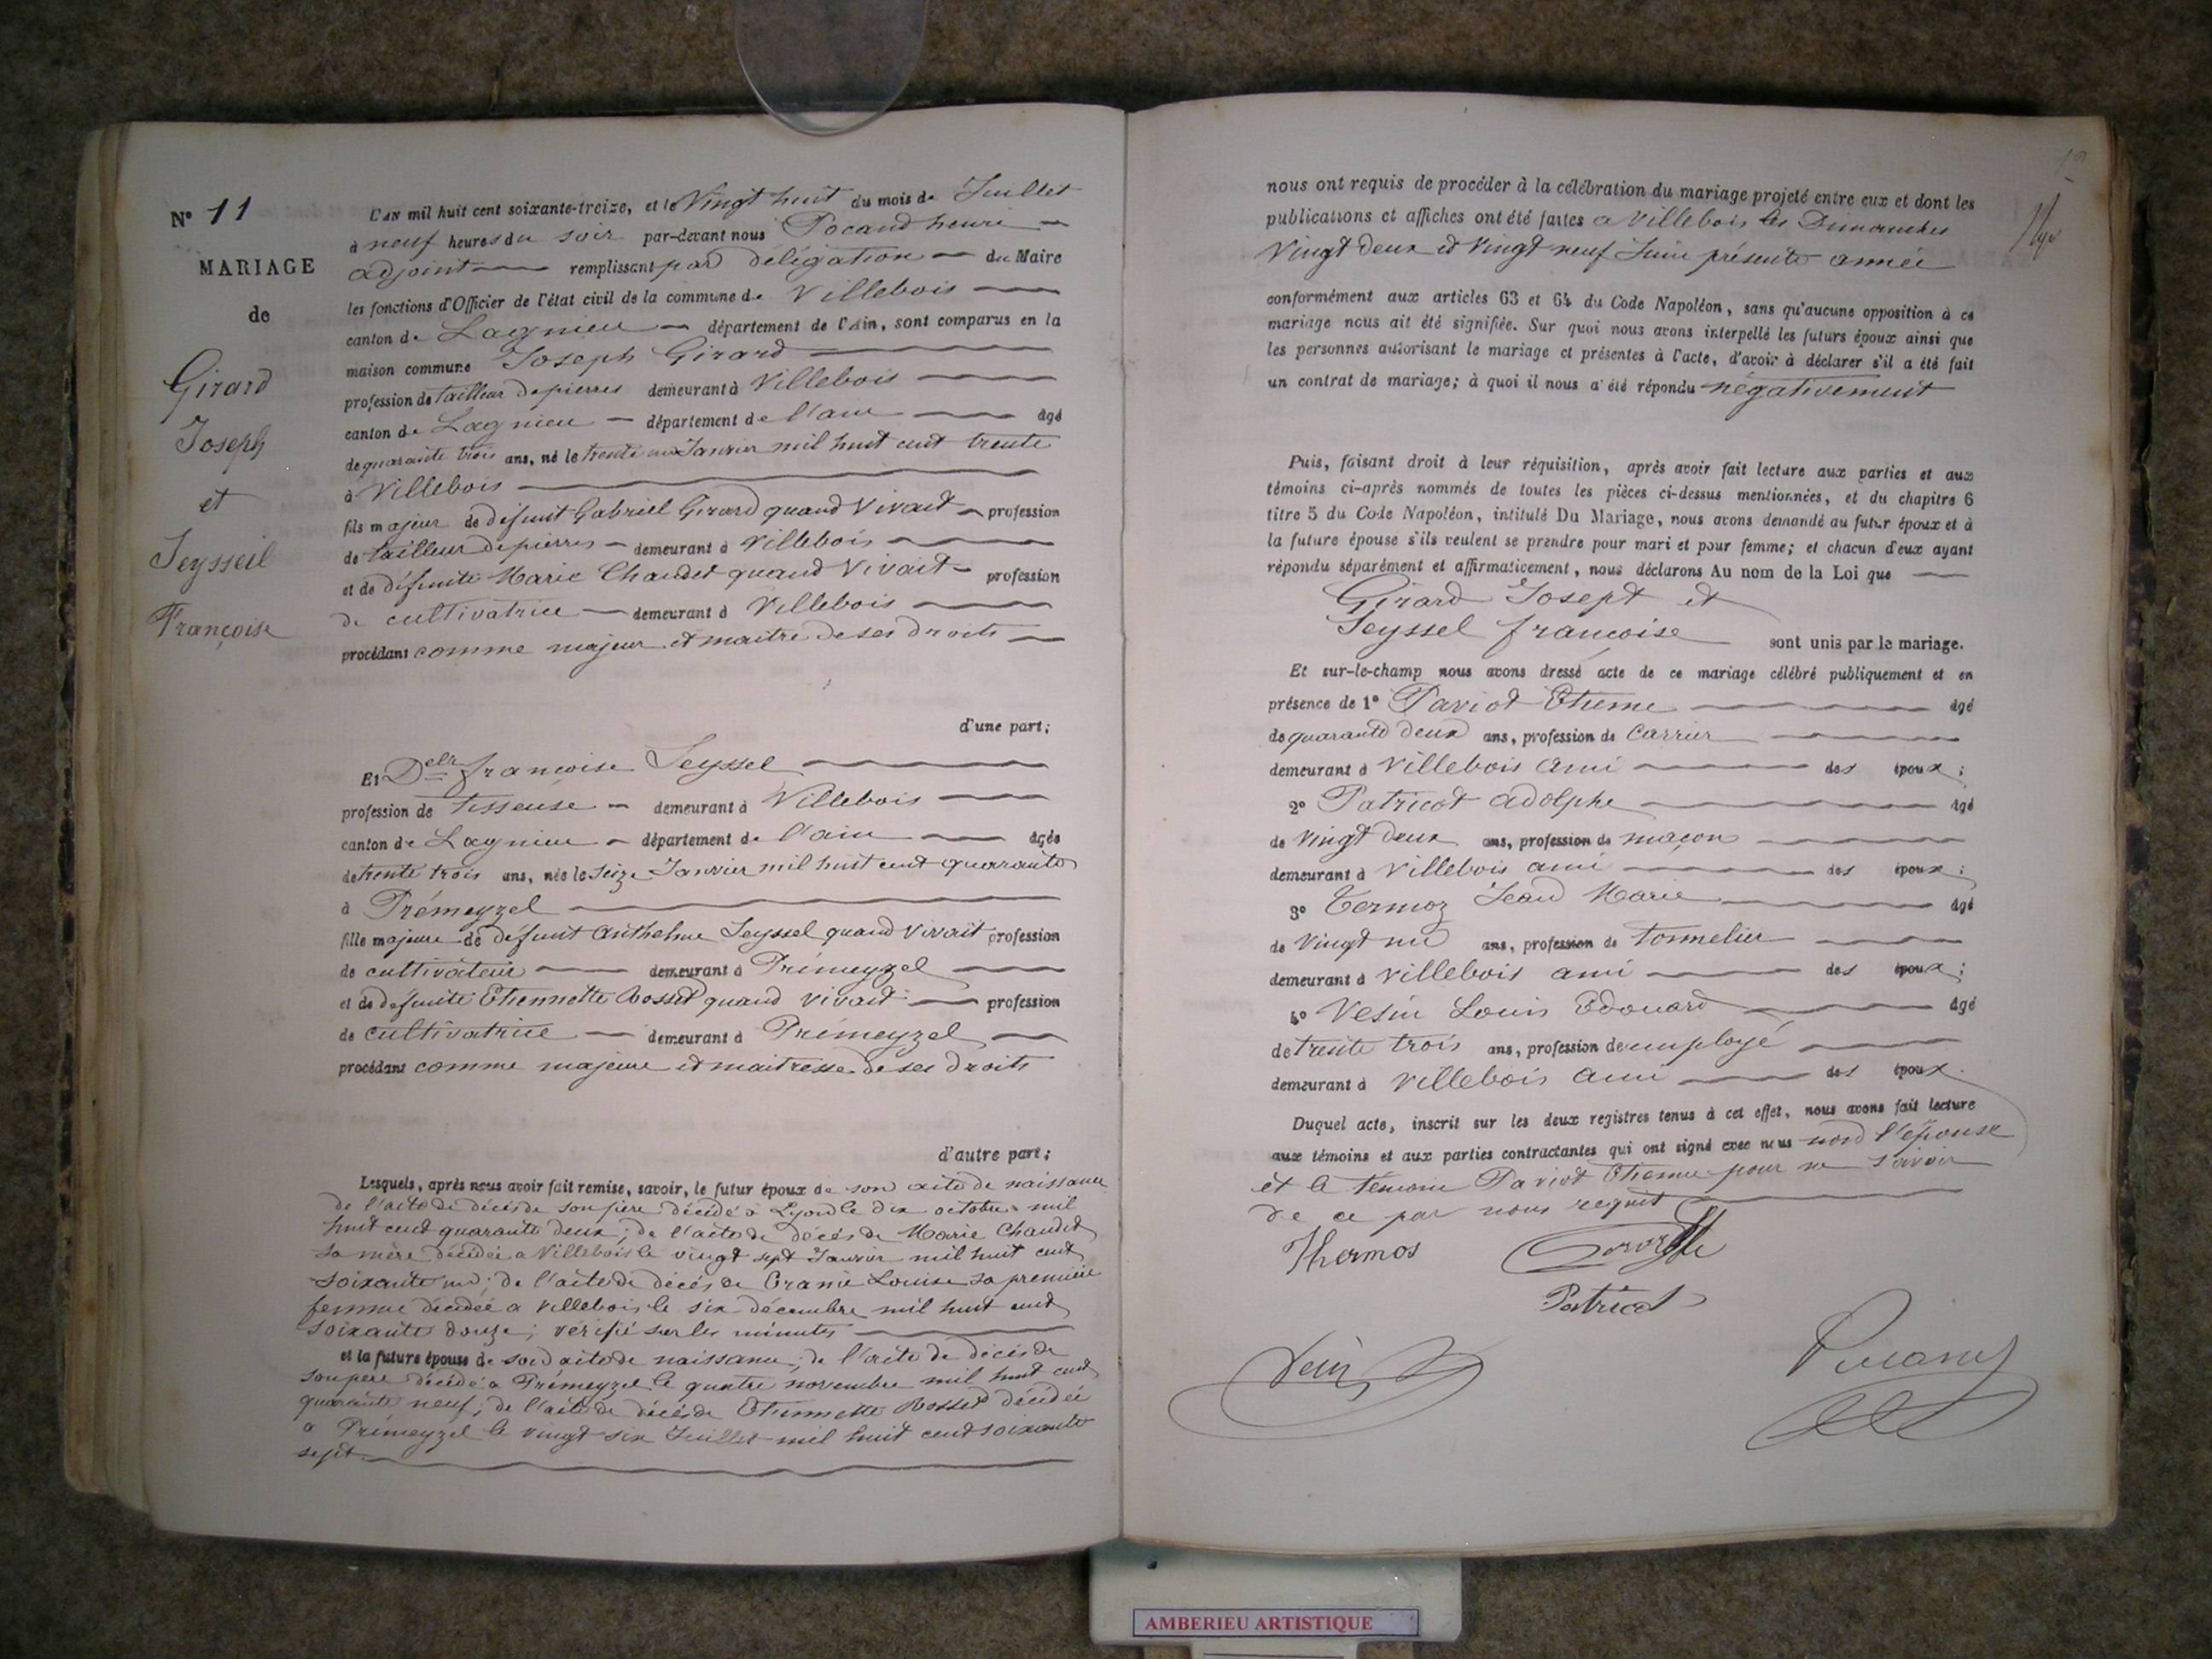 N° 11
MARIAGE
de
Girard
Joseph
et
Seysseil
Françoise
L'AN mil huit cent soixante-treize, et le Vingt huit du mois de Juillet
à neuf heures du soir par-devant nous Pocand henri
adjoint remplissant par délégation du Maire
les fonctions d'Officier de l'état civil de la commune de Villebois
canton de Lagnieu département de l'Ain, sont comparus en la
maison commune Joseph Girard
profession de tailleur de pierres demeurant à Villebois
canton de Lagnieu département de l'ain âgé
de quarante trois ans, né le trente un Janvier mil huit cent trente
à Villebois
fils majeur de défunt Gabriel Girard quand Vivait profession
de tailleur de pierres demeurant à Villebois
et de défunte Marie Chaudet quand Vivait profession
de cultivatrice demeurant à Villebois
procédant comme majeur et maitre de ses droits
d'une part;
Et Delle françoise Seyssel
profession de tisseuse demeurant à Villebois
canton de Lagnieu département de l'ain âgée
de trente trois ans, née le seize Janvier mil huit cent quarante
à Prémeyzel
fille majeure de défunt Anthelme Seyssel quand vivait profession
de cultivateur demeurant à Prémeyzel
et de défunte Etiennette Rosset quand vivait profession
de cultivatrice demeurant à Prémeyzel
procédant comme majeure et maitresse de ses droits
d'autre part;
Lesquels, après nous avoir fait remise, savoir, le futur époux de son acte de naissance
de l'acte de décès de son père décédé à Lyon le dix octobre mil
huit cent quarante deux; de l'acte de décès de Marie Chaudet
sa mère décédée a Villebois le vingt sept Janvier mil huit cent
soixante un; de l'acte de décès de Louise sa première
femme décédée a Villebois le six décembre mil huit cent
soixante douze; vérifié sur les minutes
et la future épouse de son acte de naissance; de l'acte de décès de
son père décédé a Prémeyzel le quatre novembre mil huit cent
quarante neuf; de l'acte de décès de Etiennette Rosset décédée
a Prémeyzel le vingt six Juillet mil huit cent soixante
sept
nous ont requis de procéder à la célébration du mariage projeté entre eux et dont les
publications et affiches ont été faites a Villebois les Dimanches
Vingt deux et Vingt neuf Juin présente année
conformément aux articles 63 et 64 du Code Napoléon, sans qu'aucune opposition à ce
mariage nous ait été signifiée. Sur quoi nous avons interpellé les futurs époux ainsi que
les personnes autorisant le mariage et présentes à l'acte, d'avoir à déclarer s'il a été fait
un contrat de mariage; à quoi il nous a été répondu négativement
Puis, faisant droit à leur réquisition, après avoir fait lecture aux parties et aux
témoins ci-après nommés de toutes les pièces ci-dessus mentionnées, et du chapitre 6
titre 5 du Code Napoléon, intitulé Du Mariage, nous avons demandé au futur époux et à
la future épouse s'ils veulent se prendre pour mari et pour femme; et chacun d'eux ayant
répondu séparément et affirmativement, nous déclarons Au nom de la Loi que
Girard Josept et
Seyssel françoise sont unis par le mariage.
Et sur-le-champ nous avons dressé acte de ce mariage célébré publiquement et en
présence de 1° Paviot Etienne âgé
de quarante deux ans, profession de Carrier
demeurant à Villebois ami des époux;
2° Patricot Adolphe âgé
de Vingt deux ans, profession de maçon
demeurant à Villebois ami des époux;
3° Termoz Jean Marie âgé
de Vingt un ans, profession de tonnelier
demeurant à Villebois ami des époux;
4° Vesin Louis Edouard âgé
de trente trois ans, profession de employé
demeurant à Villebois ami des époux.
Duquel acte, inscrit sur les deux registres tenus à cet effet, nous avons fait lecture
aux témoins et aux parties contractantes qui ont signé avec nous non l'épouse
et le témoin Paviot Etienne pour ne savoir
de ce par nous requit
Thermos
Patricot
AMBERIEU ARTISTIQUE